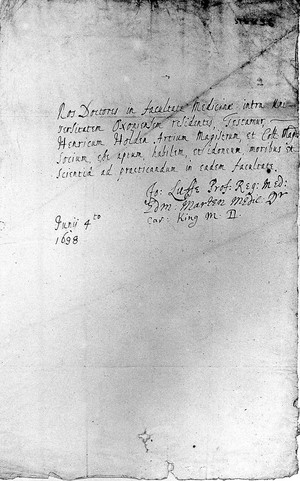 Nos Doctores in facultate Medicinæ intra Uni
versitatem Oxoniensem residentes, Testamur
Henricum Holden Artium Magistrum, et Coll:
Socium, esse aptum, habilem, et idoneum moribus et
scientiâ ad practicandum in eadem facultate.
Jo: Luffe Prof: Reg: Med:
Edm: Marten Medic Dr
Car: King M. D.
Junii 4to
1698